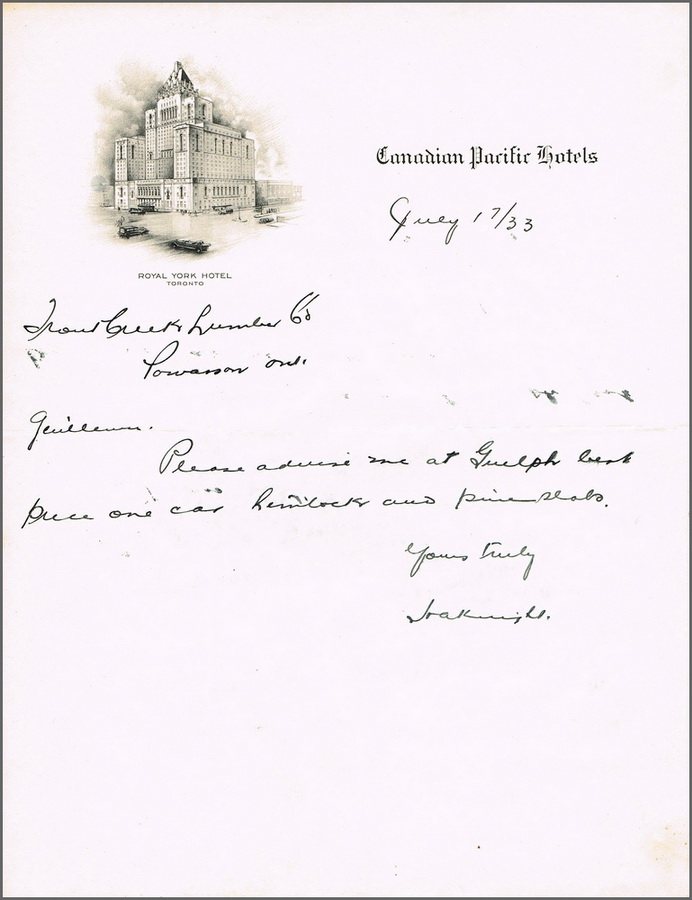 Canadian Pacific Hotels
July 17/33
ROYAL YORK HOTEL
TORONTO
Trout Creek Lumber Co
Powassan Ont.
Gentlemen.
Please advise me at Guelph best
price one car hemlock and pine slabs.
Yours truly